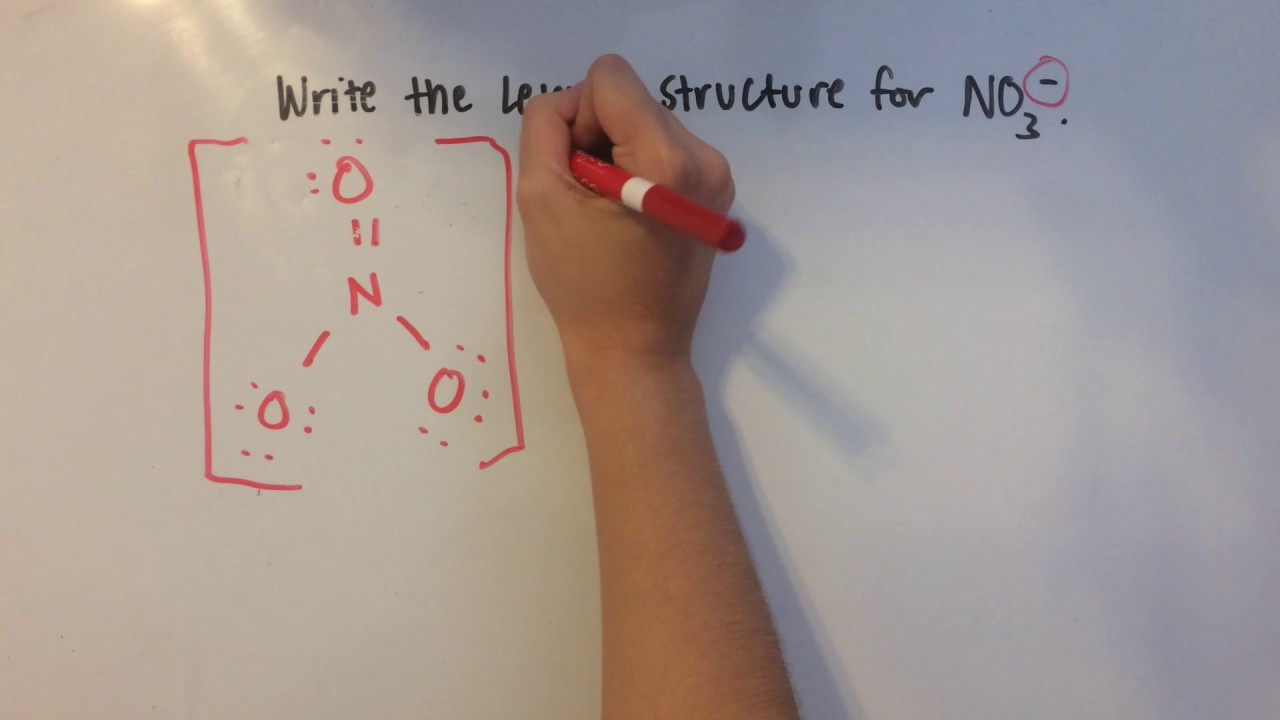 Write the structure for NO₃⁻.
:O
N
O:
O: